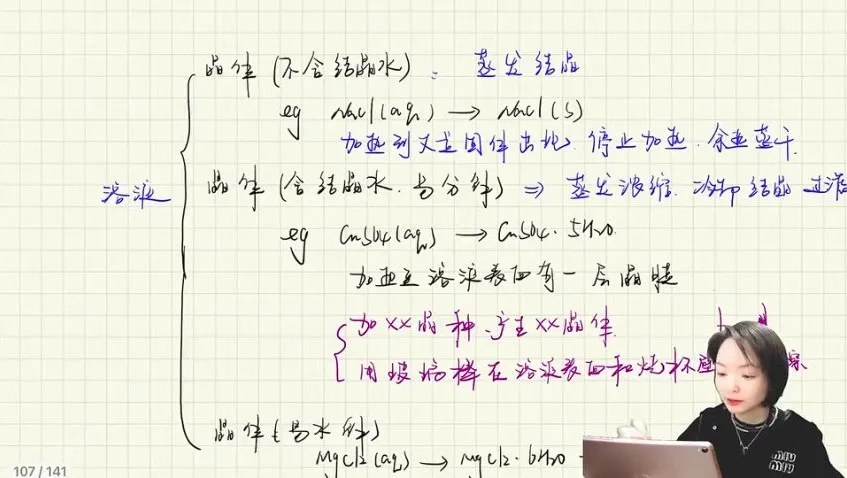 晶体(不含结晶水): 蒸发结晶
eg NaCl(aq) → NaCl(s)
加热到大量固体出现, 停止加热. 余热蒸干.
溶液
晶体(含结晶水. 易分解) ⇒ 蒸发浓缩. 冷却结晶 过滤
eg CuSO4(aq) → CuSO4·5H2O.
加热至溶液表面有一层晶膜
加XX晶种, 产生XX晶体
用玻璃棒在溶液表面和烧杯壁
晶体(易水解)
MgCl2(aq) → MgCl2·6H2O
107 / 141
MIU
MIU